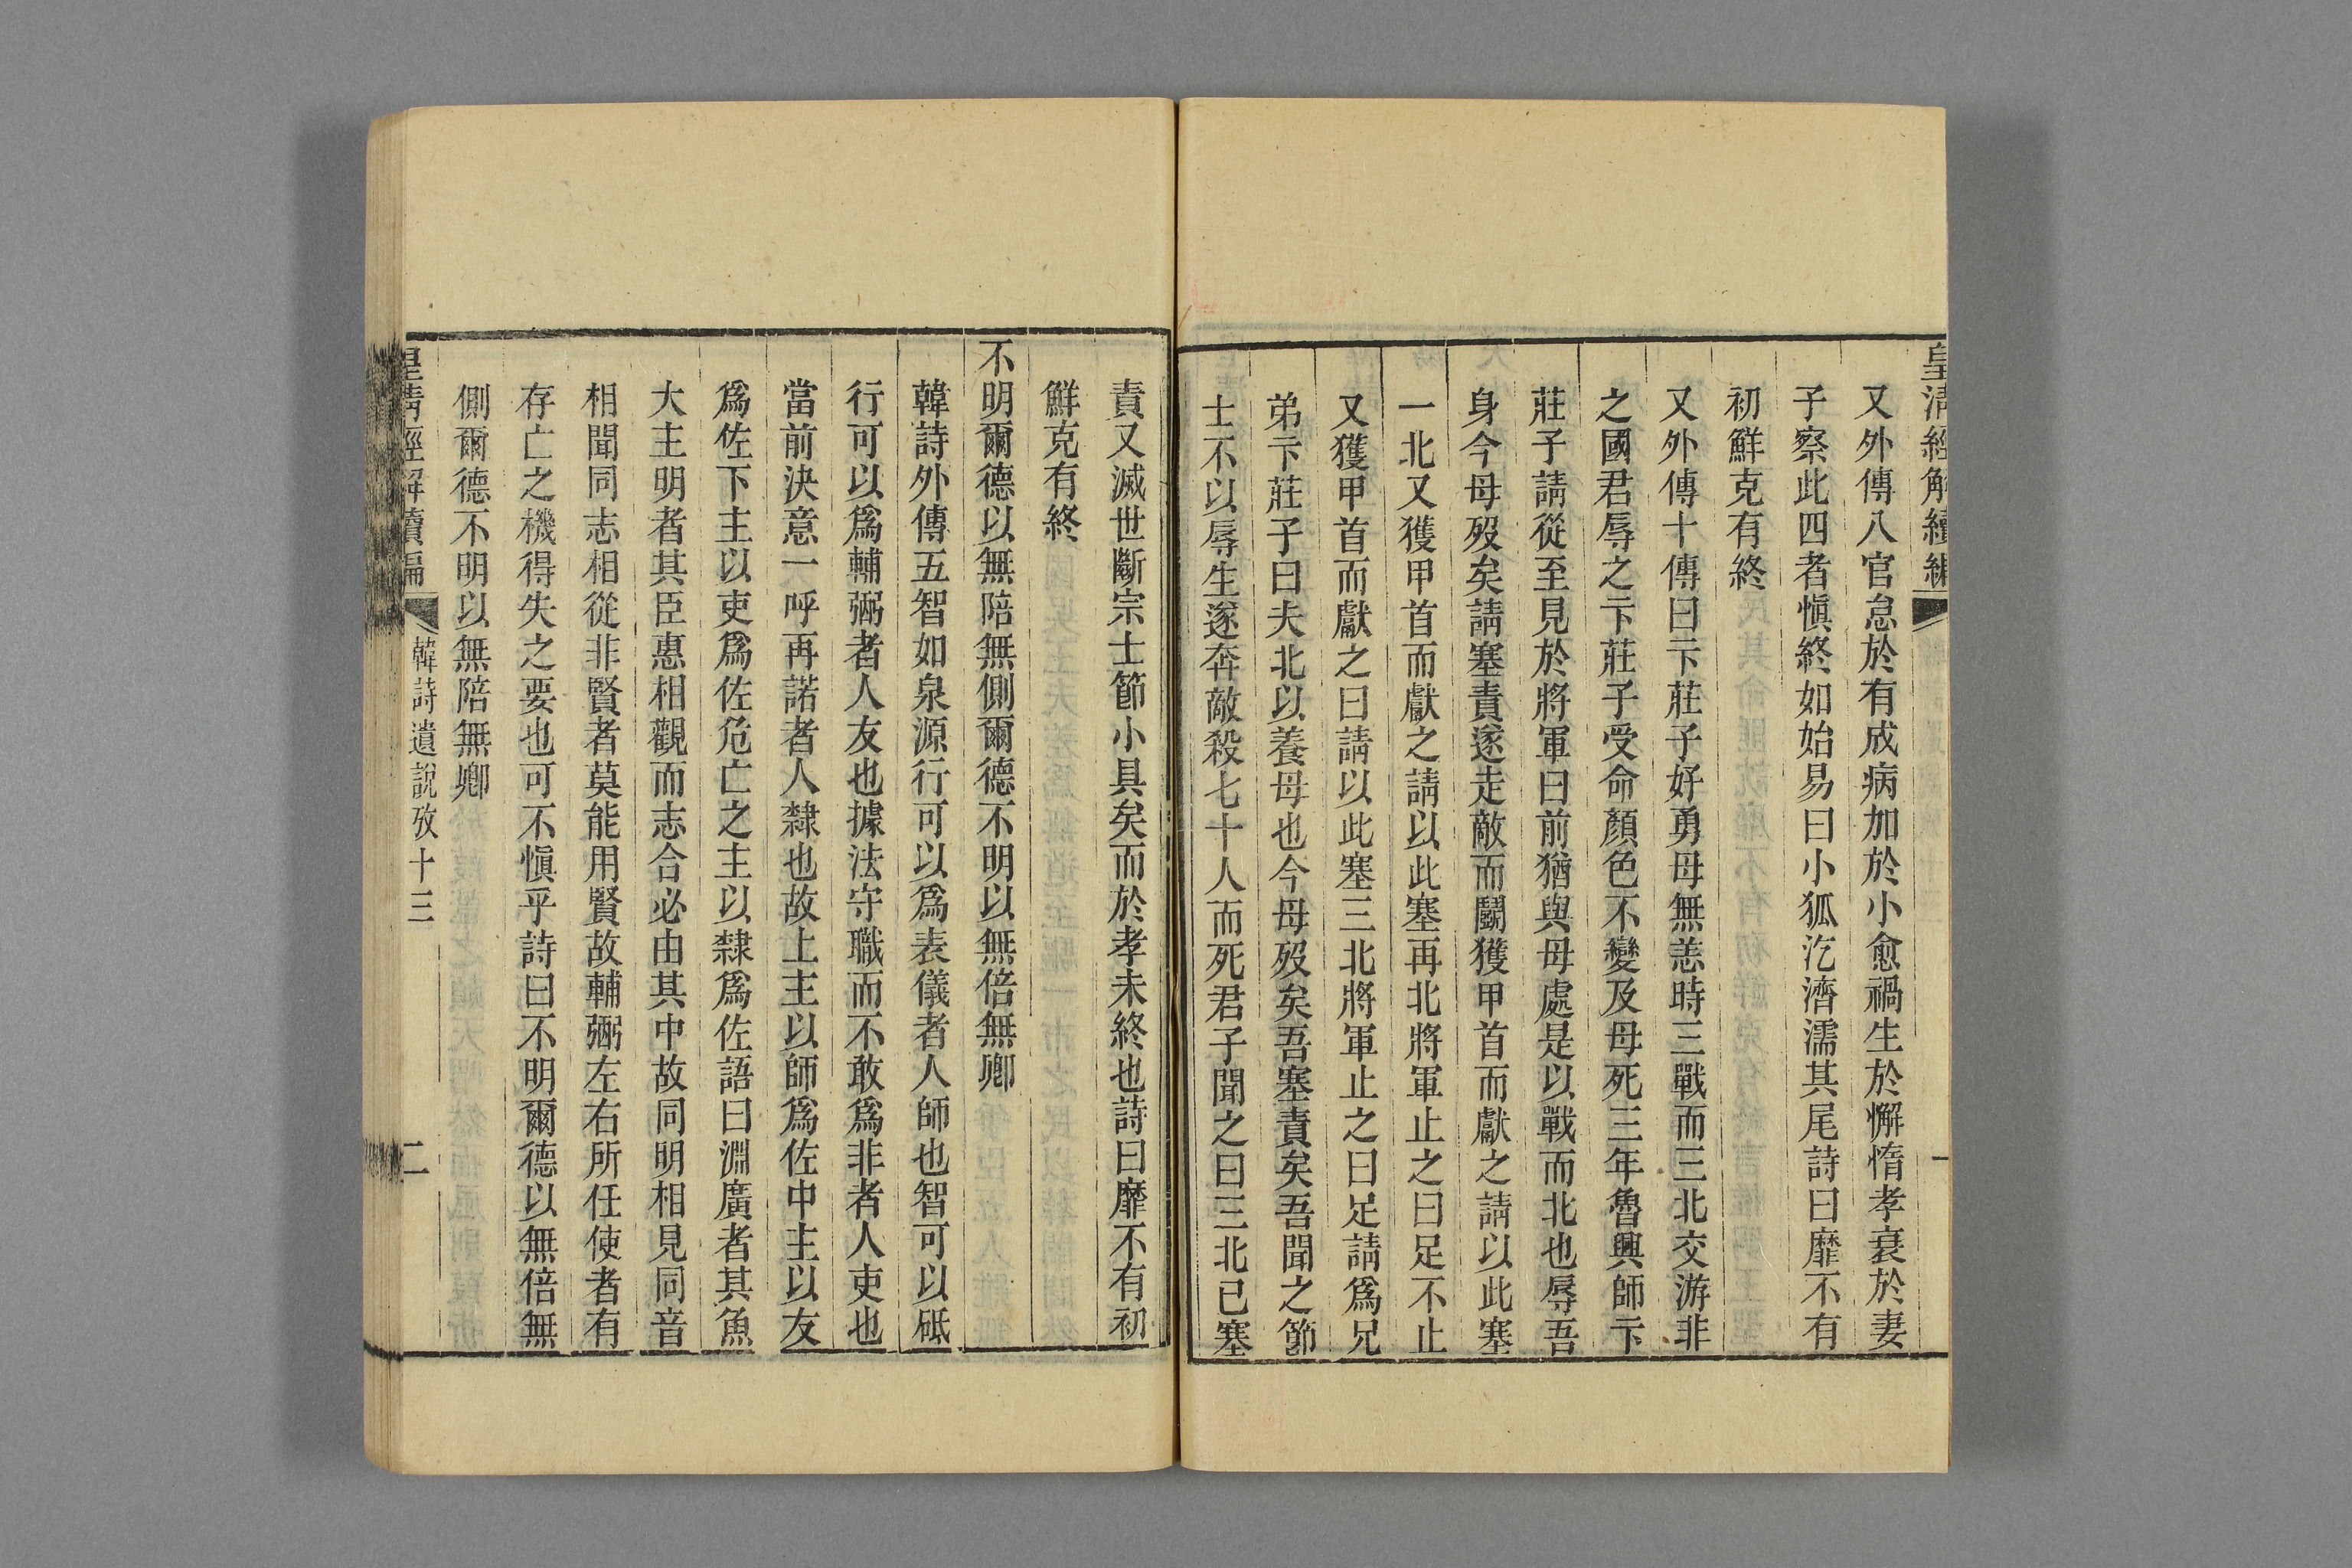 皇清經解續編
一
又外傳八官怠於有成病加於小愈禍生於懈惰孝衰於妻
子察此四者愼終如始易曰小狐汔濟濡其尾詩曰靡不有
初鮮克有終
又外傳十傳曰卞莊子好勇母無恙時三戰而三北交游非
之國君辱之卞莊子受命顏色不變及母死三年魯興師卞
莊子請從至見於將軍曰前猶與母處是以戰而北也辱吾
身今母歿矣請塞責遂走敵而鬭獲甲首而獻之請以此塞
一北又獲甲首而獻之請以此塞再北將軍止之曰足不止
又獲甲首而獻之曰請以此塞三北將軍止之曰足請爲兄
弟卞莊子曰夫北以養母也今母歿矣吾塞責矣吾聞之節
士不以辱生遂奔敵殺七十人而死君子聞之曰三北已塞
責又滅世斷宗士節小具矣而於孝未終也詩曰靡不有初
鮮克有終
不明爾德以無陪無側爾德不明以無倍無卿
韓詩外傳五智如泉源行可以爲表儀者人師也智可以砥
行可以爲輔弼者人友也據法守職而不敢爲非者人吏也
當前決意一呼再諾者人隸也故上主以師爲佐中主以友
爲佐下主以吏爲佐危亡之主以隸爲佐語曰淵廣者其魚
大主明者其臣惠相觀而志合必由其中故同明相見同音
相聞同志相從非賢者莫能用賢故輔弼左右所任使者有
存亡之機得失之要也可不愼乎詩曰不明爾德以無倍無
側爾德不明以無陪無卿
皇清經解續編
韓詩遺說攷十三
二